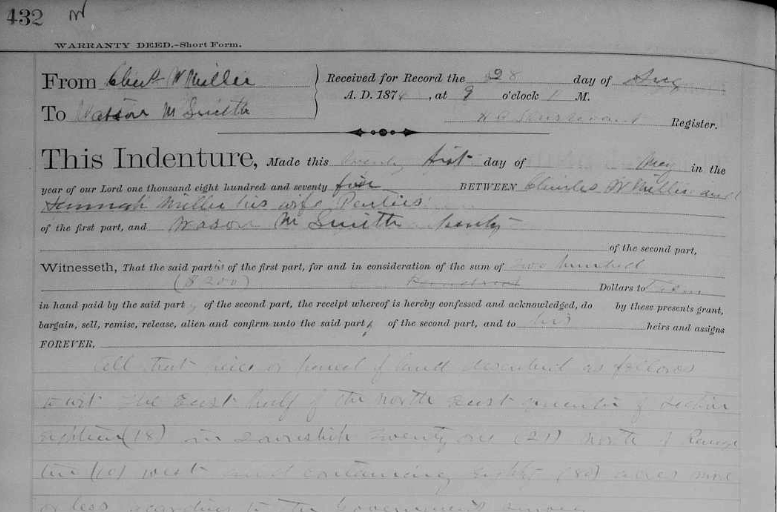 432 W
WARRANTY DEED.—Short Form.
From Chas W Miller
To Watson M Smith
Received for Record the 28 day of Aug
A. D. 187 , at 9 o'clock M.
Register.
This Indenture, Made this twenty first day of in the
year of our Lord one thousand eight hundred and seventy five BETWEEN Charles W Miller and
Hannah Miller his wife Parties
of the first part, and Watson M Smith party
of the second part,
Witnesseth, That the said parties of the first part, for and in consideration of the sum of two hundred
($200) Dollars to them
in hand paid by the said party of the second part, the receipt whereof is hereby confessed and acknowledged, do by these presents grant,
bargain, sell, remise, release, alien and confirm unto the said party of the second part, and to his heirs and assigns
FOREVER,
All that piece or parcel of land described as follows
to wit The East half of the north East quarter of Section
eighteen (18) in Township twenty one (21) north of Range
ten (10) west and containing eighty (80) acres more
or less according to the Government survey